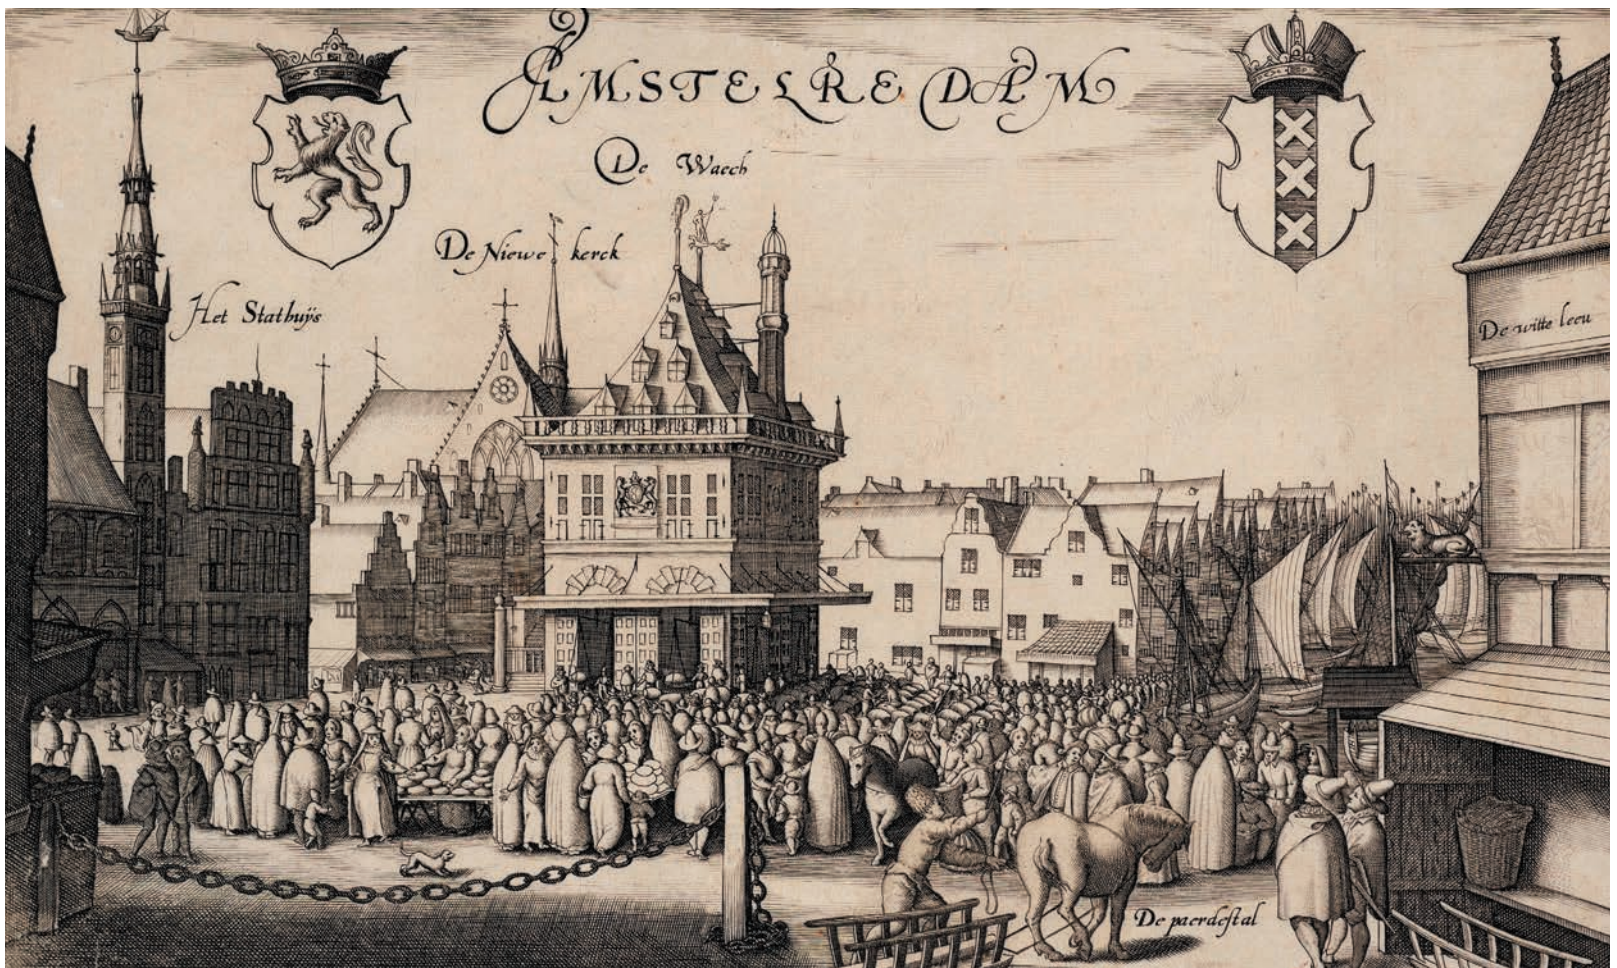 AMSTELREDAM
De Waech
De Niewe kerck
Het Stathuÿs
De witte leeu
De paerdestal